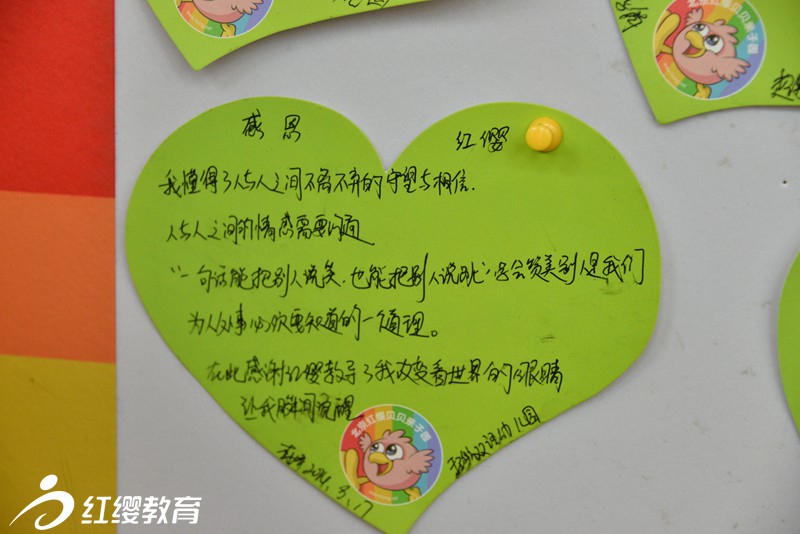 感恩 红缨
我懂得了人与人之间不离不弃的守望与相信.
人与人之间的情感需要沟通
"一句话能把别人说笑.也能把别人说跳"学会赞美别人是我们
为人处事必须要知道的一个道理。
在此感谢红缨教导了我改变看世界的眼睛
让我瞬间觉醒.
北京红缨贝贝亲子园
双语幼儿园
3.17
北京红缨贝贝亲子园
红缨教育